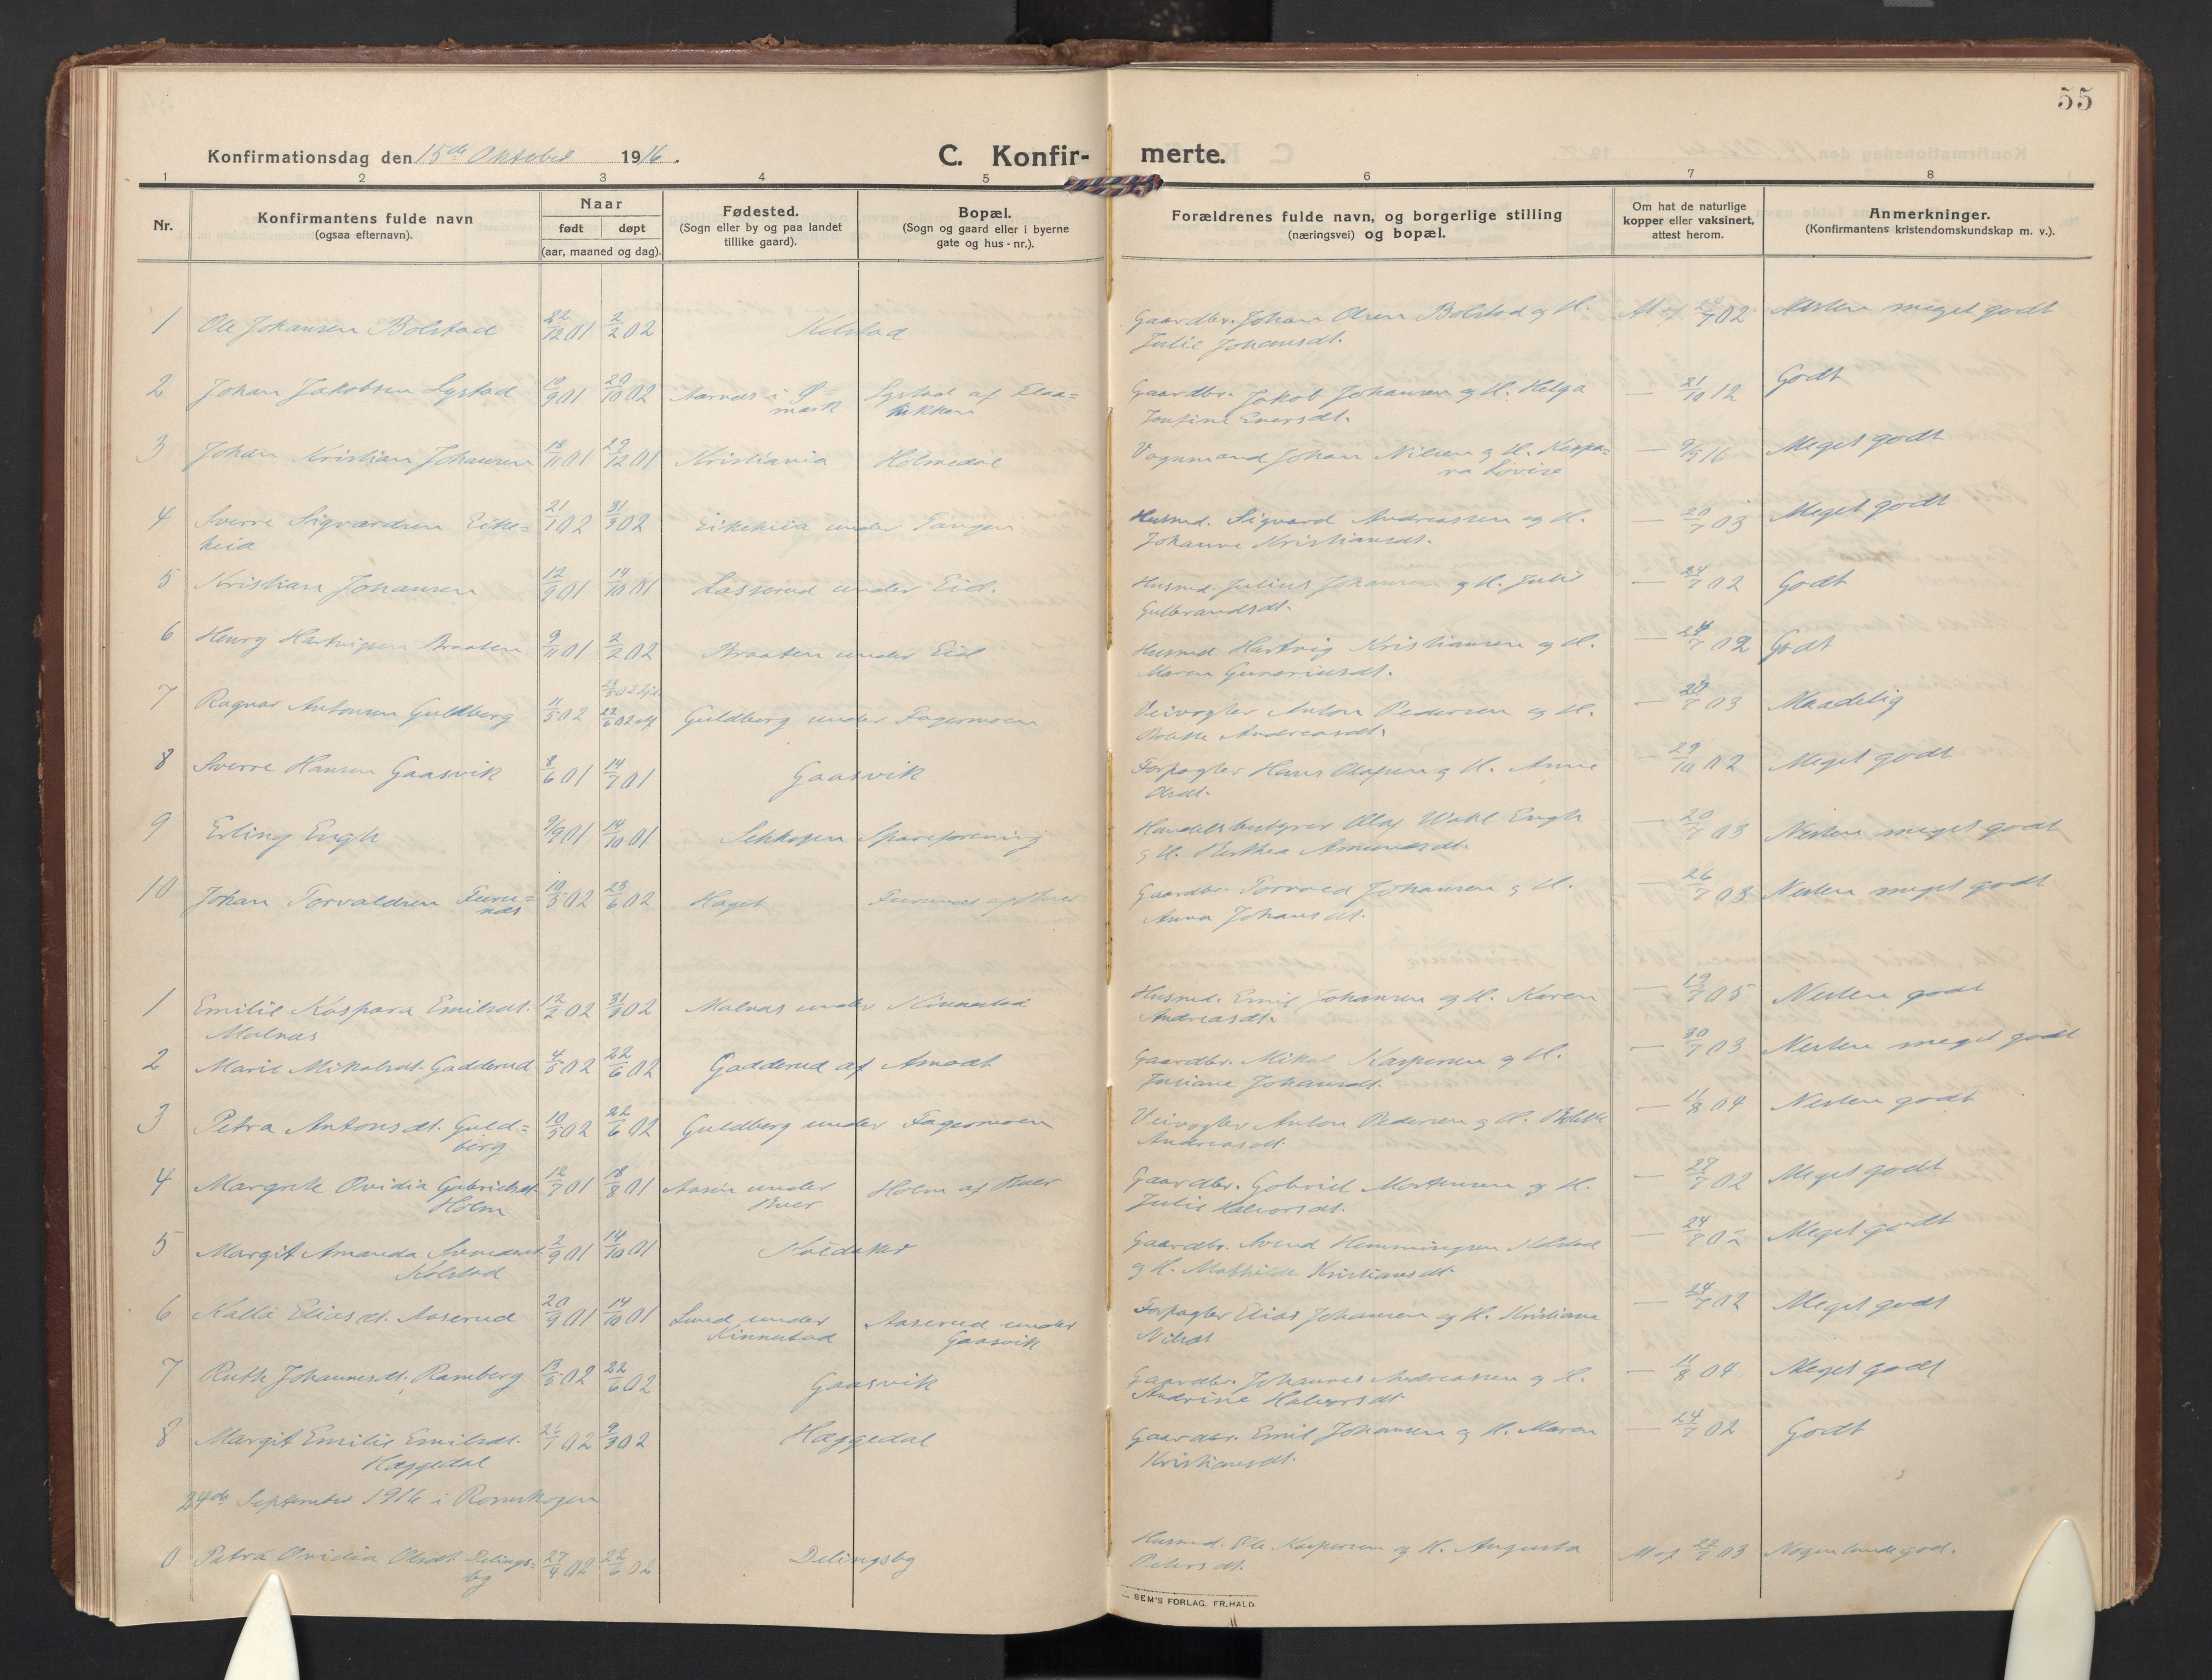 55
Konfirmationsdag den 15de Oktober 1916.
C. Konfir- merte.
1 2 3 4 5 6 7 8
Nr.
Konfirmantens fulde navn
(ogsaa efternavn).
Naar
født døpt
(aar, maaned og dag).
Fødested.
(Sogn eller by og paa landet
tillike gaard).
Bopæl.
(Sogn og gaard eller i byerne
gate og hus-nr.).
Forældrenes fulde navn, og borgerlige stilling
(næringsvei) og bopæl.
Om hat de naturlige
kopper eller vaksinert,
attest herom.
Anmerkninger.
(Konfirmantens kristendomskundskap m. v.).
1 Ole Johansen Bolstad 22/12 01 2/2 02 Gaardbr. Johan Olsen Bolstad og H. At af 24/7 02 Nesten meget godt
Julie Johansdt.
2 Johan Jakobsen Lystad 10/9 01 20/10 02 Aarnæs i Ø= Lystad af Elaa= Gaardbr. Jakob Johansen og H. Helga — 21/10 12 Godt
mark
Josefine Eversdt.
3 Johan Kristian Johansen 18/11 01 29/12 01 Kristiania Holmedal Vognmand Johan Nilsen og H. Kaspa= — 9/9 16 Meget godt
ra Lovise
4 Sverre Sigvardsen Eike= 21/1 02 31/3 02 Eikeheia under Tangen Husmd. Sigvard Andreassen og H. — 20/7 03 Meget godt
heia
Johanne Kristiansdt.
5 Kristian Johansen 12/9 01 14/10 01 Lasserud under Eid. Husmd. Julius Johansen og H. Julie — 24/7 02 Godt
Gulbrandsdt.
6 Henry Hartvigsen Braaten 9/11 01 2/2 02 Braaten under Eid Husmd Hartvig Kristiansen og H. — 24/7 02 Godt
Maren Guneriusdt.
7 Ragnar Antonsen Guldberg 11/5 02 22/6 02 Guldberg under Fagermoen Veivogter Anton Pedersen og H. — 20/7 03 Maadelig
Bolette Andreasdt.
8 Sverre Hansen Gaasvik 8/6 01 14/7 01 Gaasvik Forpagter Hans Olafsen og H. Anne — 29/10 02 Meget godt
Olsdt.
9 Erling Engh 9/9 01 14/10 01 Setskogen Spareforening Handelsbestyrer Olaf Wahl Engh — 20/7 03 Nesten meget godt
og H. Berthea Amundsdt.
10 Johan Torvaldsen Furu= 10/5 02 23/6 02 Haget Furunæs af Gaardbr. Torvald Johansen og H. — 26/7 03 Nesten meget godt
næs
Anna Johansdt.
1 Emilie Kaspara Emilsdt. 12/2 02 31/3 02 Molnæs under Kinnestad Husmd. Emil Johansen og H. Karen — 19/7 05 Nesten godt
Molnæs
Andreasdt.
2 Marie Mikalsdt. Gadderud 4/5 02 22/6 02 Gadderud af Amodt Gaardbr. Mikal Kaspersen og H. — 30/7 03 Nesten meget godt
Juliane Johansdt.
3 Petra Antonsdt. Guld= 10/5 02 22/6 02 Guldberg under Fagermoen Veivogter Anton Pedersen og H. Bolette — 11/8 04 Nesten godt
berg
Andreasdt.
4 Margrete Ovidia Gabrielsdt. 12/7 01 18/8 01 Aasen under Holm af Buer Gaardbr. Gabriel Mortensen og H. — 27/7 02 Meget godt
Holm Buer
Julie Halvorsdt.
5 Margit Amanda Svendsdt. 2/9 01 14/10 01 Gaardbr. Svend Hemmingsen Kolstad — 24/7 02 Meget godt
Kolstad
og H. Mathilde Kristiansdt.
6 Kalla Eliasdt. Aaserud 20/9 01 14/10 01 Lund under Aaserud under Forpagter Elias Johansen og H. Kristiane — 24/7 02 Meget godt
Kinnestad Gaasvik
Nilsdt
7 Ruth Johannesdt. Ramberg 13/5 02 22/6 02 Gaasvik Gaardbr. Johannes Andreassen og H. — 11/8 04 Meget godt
Andrine Halvorsdt.
8 Margit Emilie Emilsdt. 02 9/3 02 Hæggedal Gaardbr. Emil Johansen og H. Maren — 24/7 02 Godt
Hæggedal
Kristiansdt.
24de September 1916 i Rømskogen
0 Petra Ovidia Olsdt. Delings= 27/4 02 22/6 02 Delingsby Husmd. Ole Kaspersen og H. Augusta At af 22/7 03 Nogenlunde god.
by
Petersdt.
SEM'S FORLAG, FR.HALD